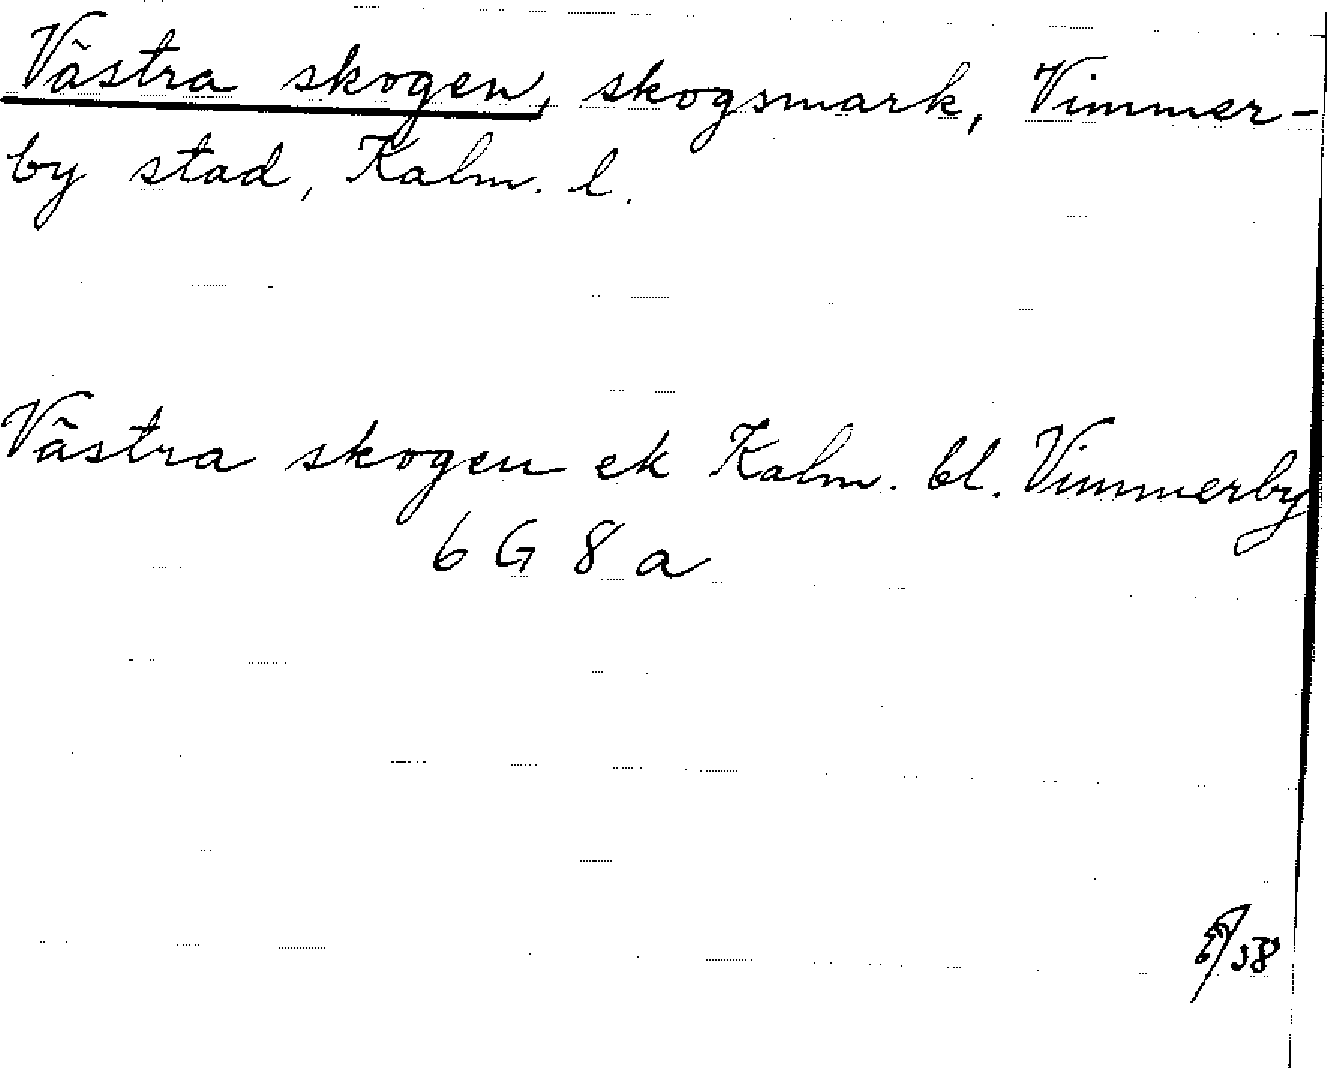 Västra skogen, skogsmark, Vimmer-
by stad, Kalm. l.
Västra skogen ek Kalm. bl. Vimmerby
6 G 8 a